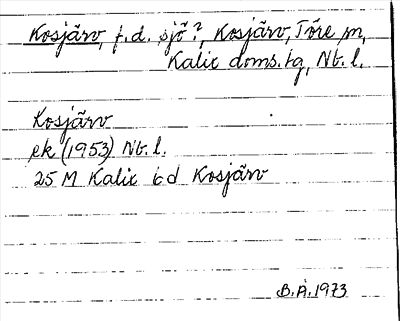 Kosjärv, f.d. sjö?, Kosjärv, Töre sn,
Kalix doms.tg, Nb. l.
Kosjärv
ek (1953) Nb. l.
25 M Kalix 6 d Kosjärv
B.Å. 1973